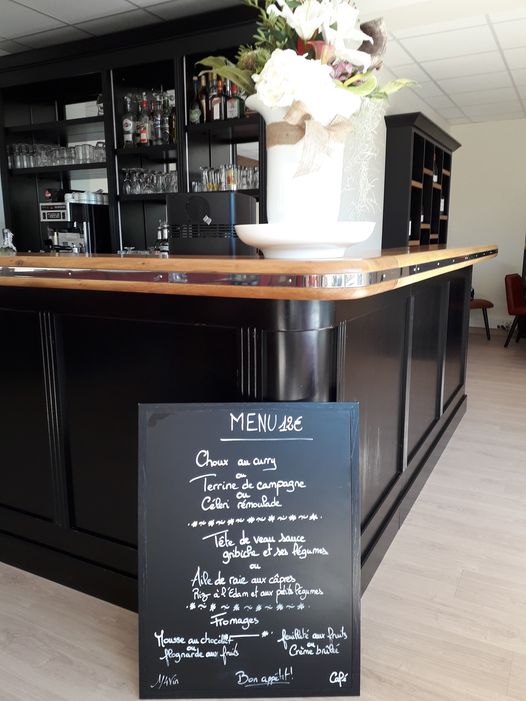 MENU 12€
Choux au curry
ou
Terrine de campagne
ou
Céleri rémoulade
Tête de veau sauce
gribiche et ses légumes
ou
Aile de raie aux câpres
Riz à l'Edam et aux petits légumes
Fromages
Mousse au chocolat
ou
flognarde aux fruits
feuilleté aux fruits
ou
Crème brûlée
Bon appétit!
Café